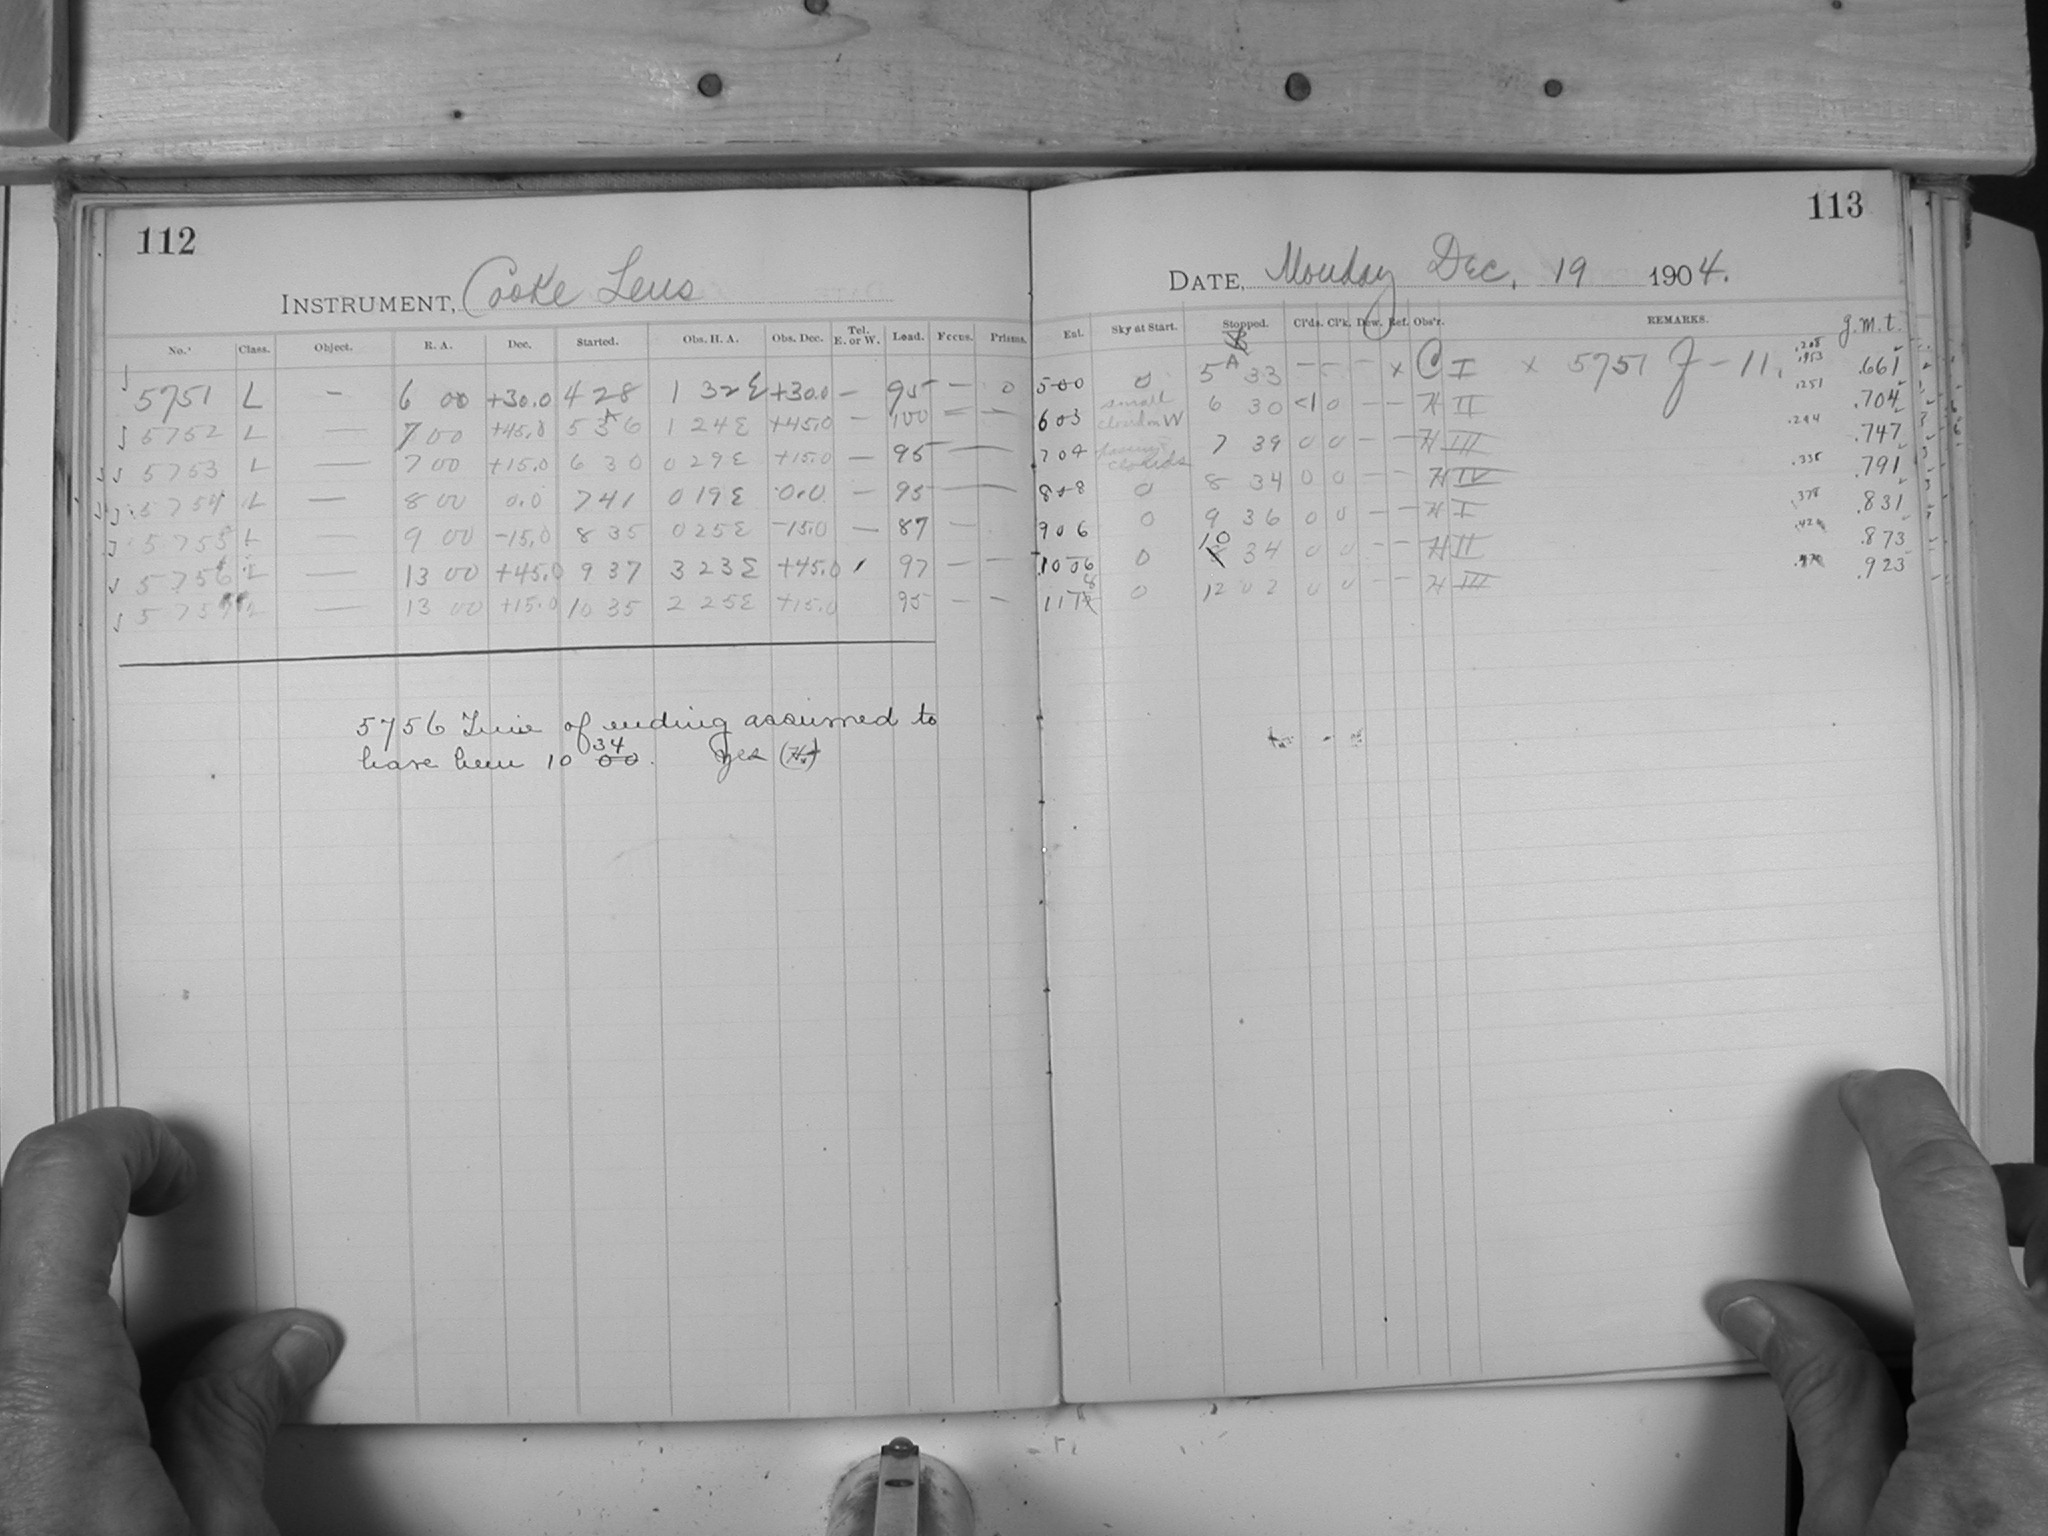 112
INSTRUMENT, Cooke Lens
No. Class. Object. R. A. Dec. Started. Obs. H. A. Obs. Dec. Tel. E. or W. Load. Focus. Prisms.
5751 L — 6 00 +30.0 4 28 1 32 E +30.0 — 95 — 0
5752 L — 7 00 +45.0 5 36 1 24 E +45.0 — 100 — —
5753 L — 7 00 +15.0 6 30 0 29 E +15.0 — 95 — —
5754 L — 8 00 0.0 7 41 0 19 E 0.0 — 95 — —
5755 L — 9 00 -15.0 8 35 0 25 E -15.0 — 87 —
5756 L — 13 00 +45.0 9 37 3 23 E +45.0 97 — —
5757 L — 13 00 +15.0 10 35 2 25 E +15.0 95 — —
5756 Time of ending assumed to
have been 10 34 00. Yes (H.)
113
DATE, Monday Dec. 19 1904.
Ent. Sky at Start. Stopped. Cl'ds. Cl'k. Dew. Ref. Obs'r. REMARKS. g.m.t.
500 0 5 33 — — — x C I x 5751 J - 11. .661
603 small cloud on W 6 30 <1 0 — — H II .251 .704
704 passing clouds 7 39 0 0 — — H III .294 .747
808 0 8 34 0 0 — — H IV .335 .791
906 0 9 36 0 0 — — H I .378 .831
1006 0 10 34 0 0 — — H II .873
0 12 02 0 0 — — H III .923